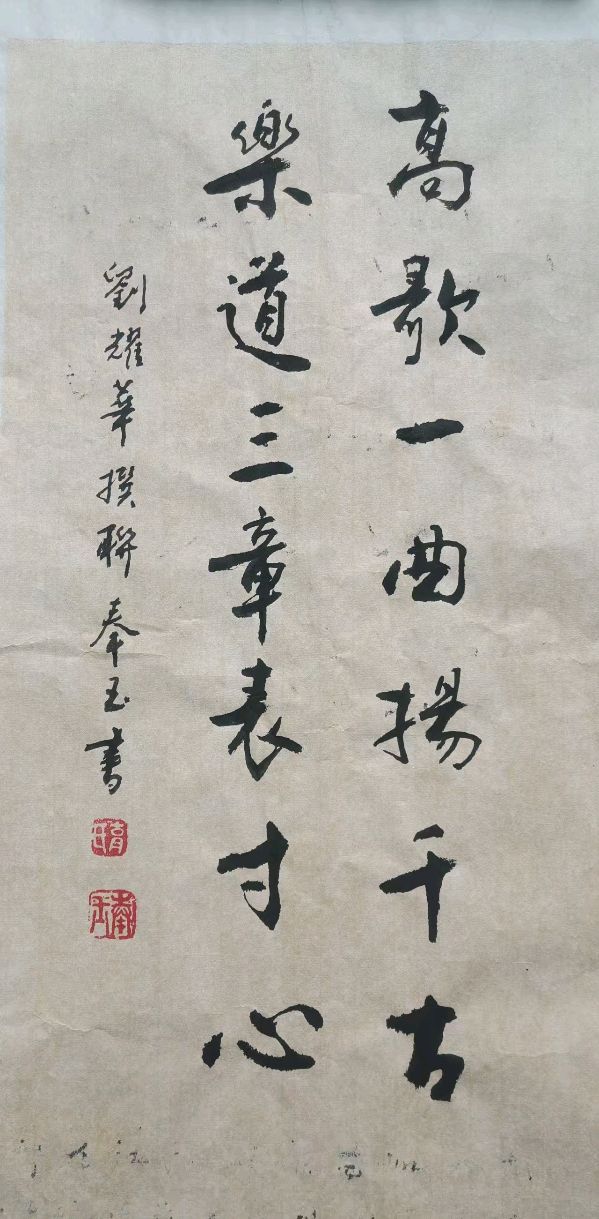 高歌一曲揚千古
樂道三章表寸心
劉耀華撰聯奉玉書